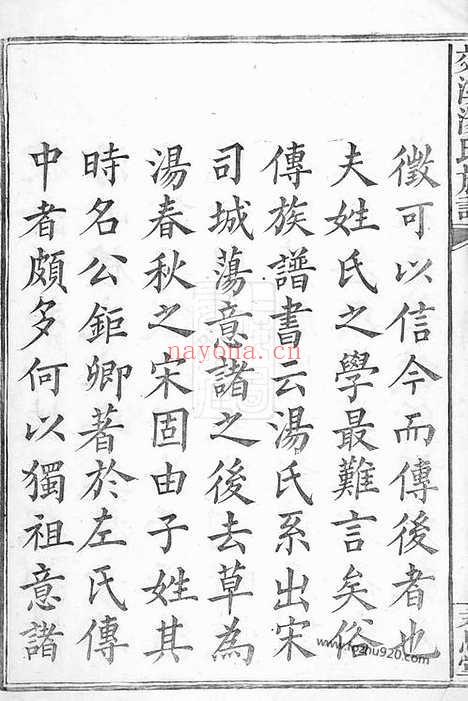 徵可以信今而傳後者也
夫姓氏之學最難言矣俗
傳族譜書云湯氏系出宋
司城蕩意諸之後去草為
湯春秋之宋固由子姓其
時名公鉅卿著於左氏傳
中者頗多何以獨祖意諸
nayona.cn